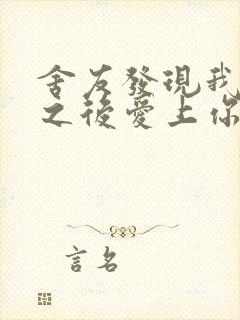 舍友發現我
之後愛上你
言名